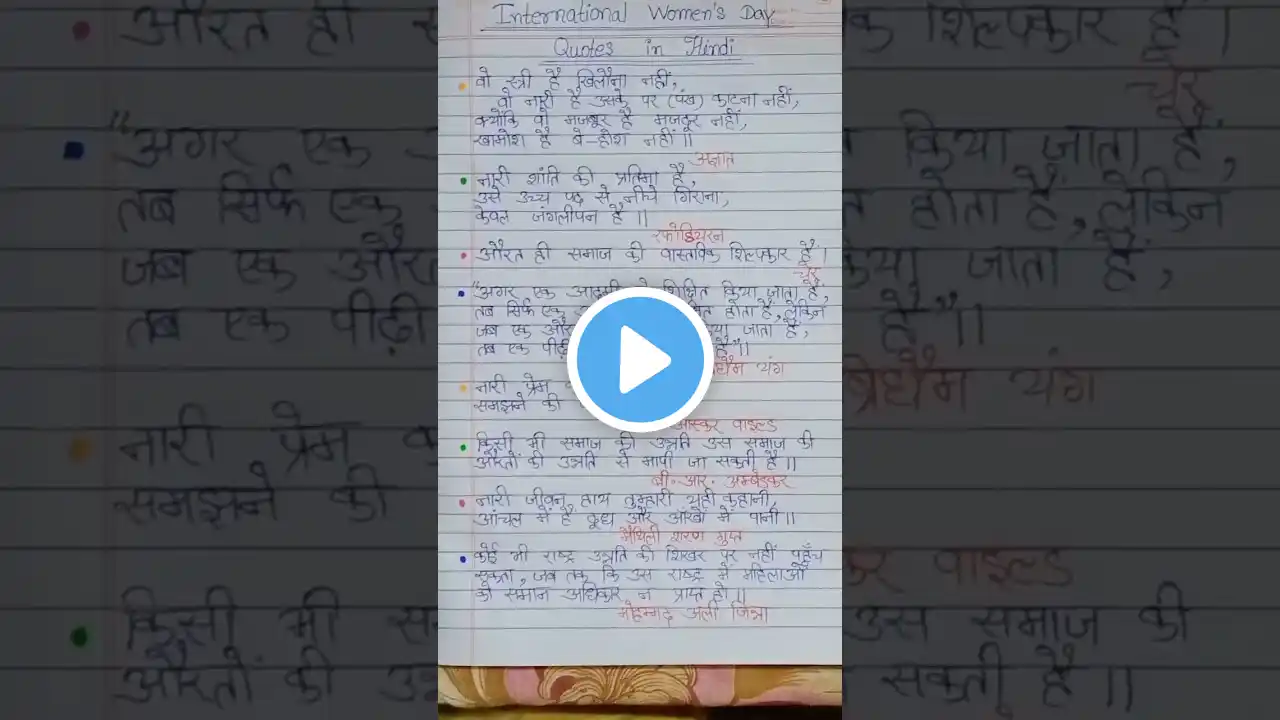 International Women's Day
Quotes in Hindi
वो स्त्री है खिलौना नहीं,
वो नारी है उसके पर (पंख) काटना नहीं,
क्योंकि वो मजबूर है मजदूर नहीं,
खामोश है बे-होश नहीं।।
अज्ञात
नारी शांति की प्रतिमा है,
उसे उच्च पद से नीचे गिराना,
केवल जंगलीपन है।।
औरत ही समाज की वास्तविक शिल्पकार है।
चेर
"अगर एक आदमी को शिक्षित किया जाता है,
तब सिर्फ एक होता है, लेकिन
जब एक जाता है,
तब एक पीढ़ी है"।।
ब्रिघैम यंग
नारी प्रेम
समझने की
ऑस्कर वाइल्ड
किसी भी समाज की उन्नति उस समाज की
औरतों की उन्नति से मापी जा सकती है।।
बी. आर. अम्बेडकर
नारी जीवन, हाय तुम्हारी यही कहानी,
आंचल में है दूध और आंखों में पानी।।
मैथिली शरण गुप्त
कोई भी राष्ट्र उन्नति की शिखर पर नहीं पहुँच
सकता, जब तक कि उस राष्ट्र में महिलाओं
को समान अधिकार न प्राप्त हो।।
मोहम्मद अली जिन्ना